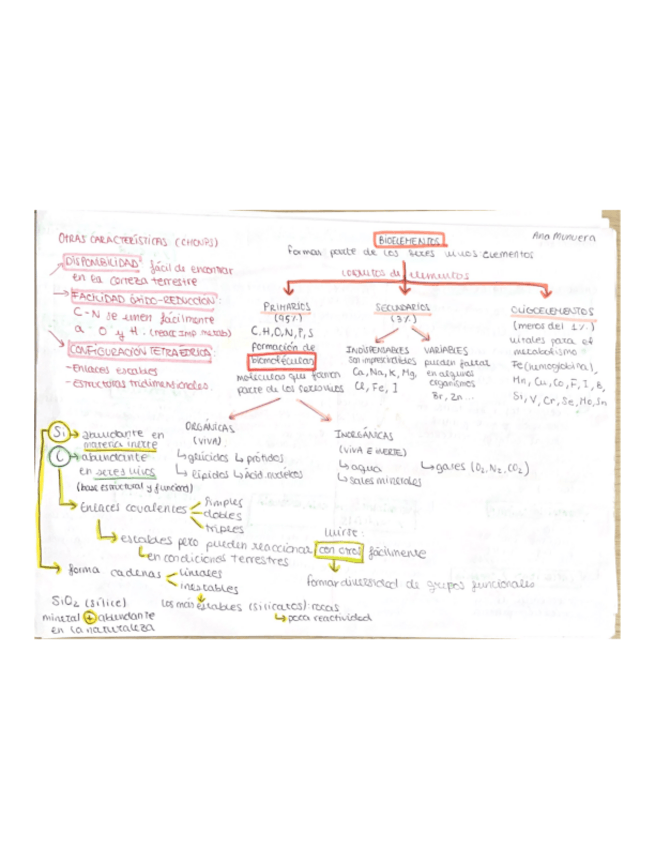 Ana Munuera
OTRAS CARACTERÍSTICAS (CHONPS)
DISPONIBILIDAD: fácil de encontrar
en la corteza terrestre
FACILIDAD ÓXIDO-REDUCCIÓN:
C-N se unen fácilmente
a O y H. (reacc imp metab)
CONFIGURACIÓN TETRAÉDRICA:
- Enlaces estables
- Estructuras tridimensionales.
BIOELEMENTOS
forman parte de los seres vivos elementos
conjuntos de elementos
PRIMARIOS
(95%)
C,H,O,N,P,S
formación de
biomoléculas
moléculas que forman
parte de los seres vivos
SECUNDARIOS
(3%)
INDISPENSABLES
son imprescindibles
Ca, Na, K, Mg,
Cl, Fe, I
VARIABLES
pueden faltar
en algunos
organismos
Br, Zn...
OLIGOELEMENTOS
(menos del 1%)
vitales para el
metabolismo
Fe (hemoglobina),
Mn, Cu, Co, F, I, B,
Si, V, Cr, Se, Mo, Sn
ORGÁNICAS
(VIVA)
↳ glúcidos ↳ prótidos
↳ lípidos ↳ Ácid. nucléicos
INORGÁNICAS
(VIVA E INERTE)
↳ agua ↳ gases (O₂, N₂, CO₂)
↳ sales minerales
Si → abundante en
materia inerte
C → abundante
en seres vivos
(base estructural y funcional)
Enlaces covalentes
simples
dobles
triples
↳ estables pero pueden reaccionar con otros fácilmente
↳ en condiciones terrestres
unirse:
formar diversidad de grupos funcionales
forma cadenas
lineales
inestables
SiO₂ (sílice)
mineral + abundante
en la naturaleza
los más estables (silicatos): rocas
↳ poca reactividad